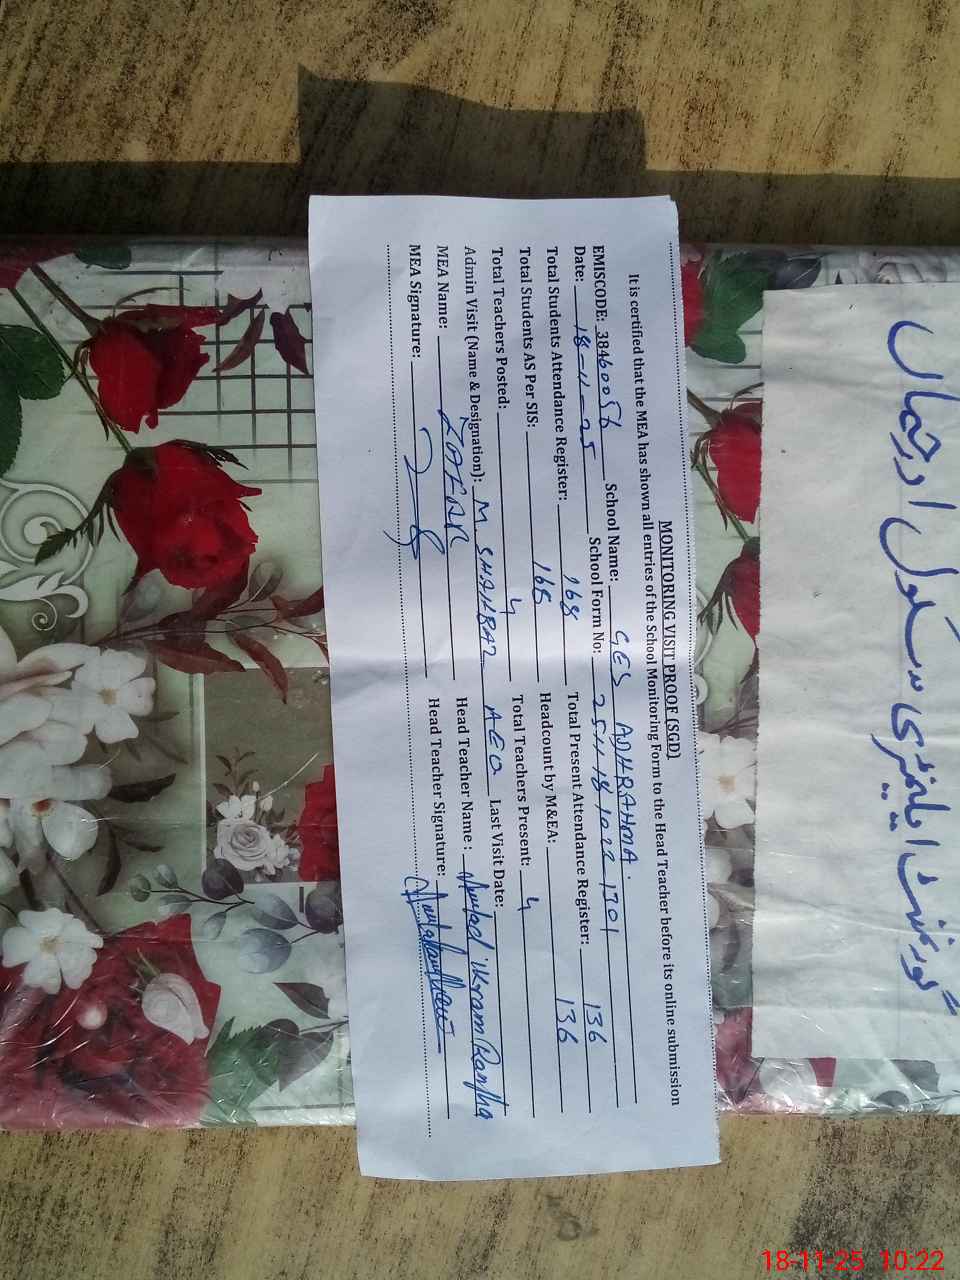 گورنمنٹ ایلیمنٹری سکول ادرحماں
MONITORING VISIT PROOF (SGD)
It is certified that the MEA has shown all entries of the School Monitoring Form to the Head Teacher before its online submission
EMISCODE: 38460056 School Name: GES ADHRAHMA.
Date: 18-11-25 School Form No: 2511181022 1301
Total Students Attendance Register: 168 Total Present Attendance Register: 136
Total Students AS Per SIS: 168 Headcount by M&EA: 136
Total Teachers Posted: 4 Total Teachers Present: 4
Admin Visit (Name & Designation): M SHAHBAZ AEO Last Visit Date:
MEA Name: ZAFAR Head Teacher Name: Ikram
MEA Signature: Head Teacher Signature:
18-11-25 10:22